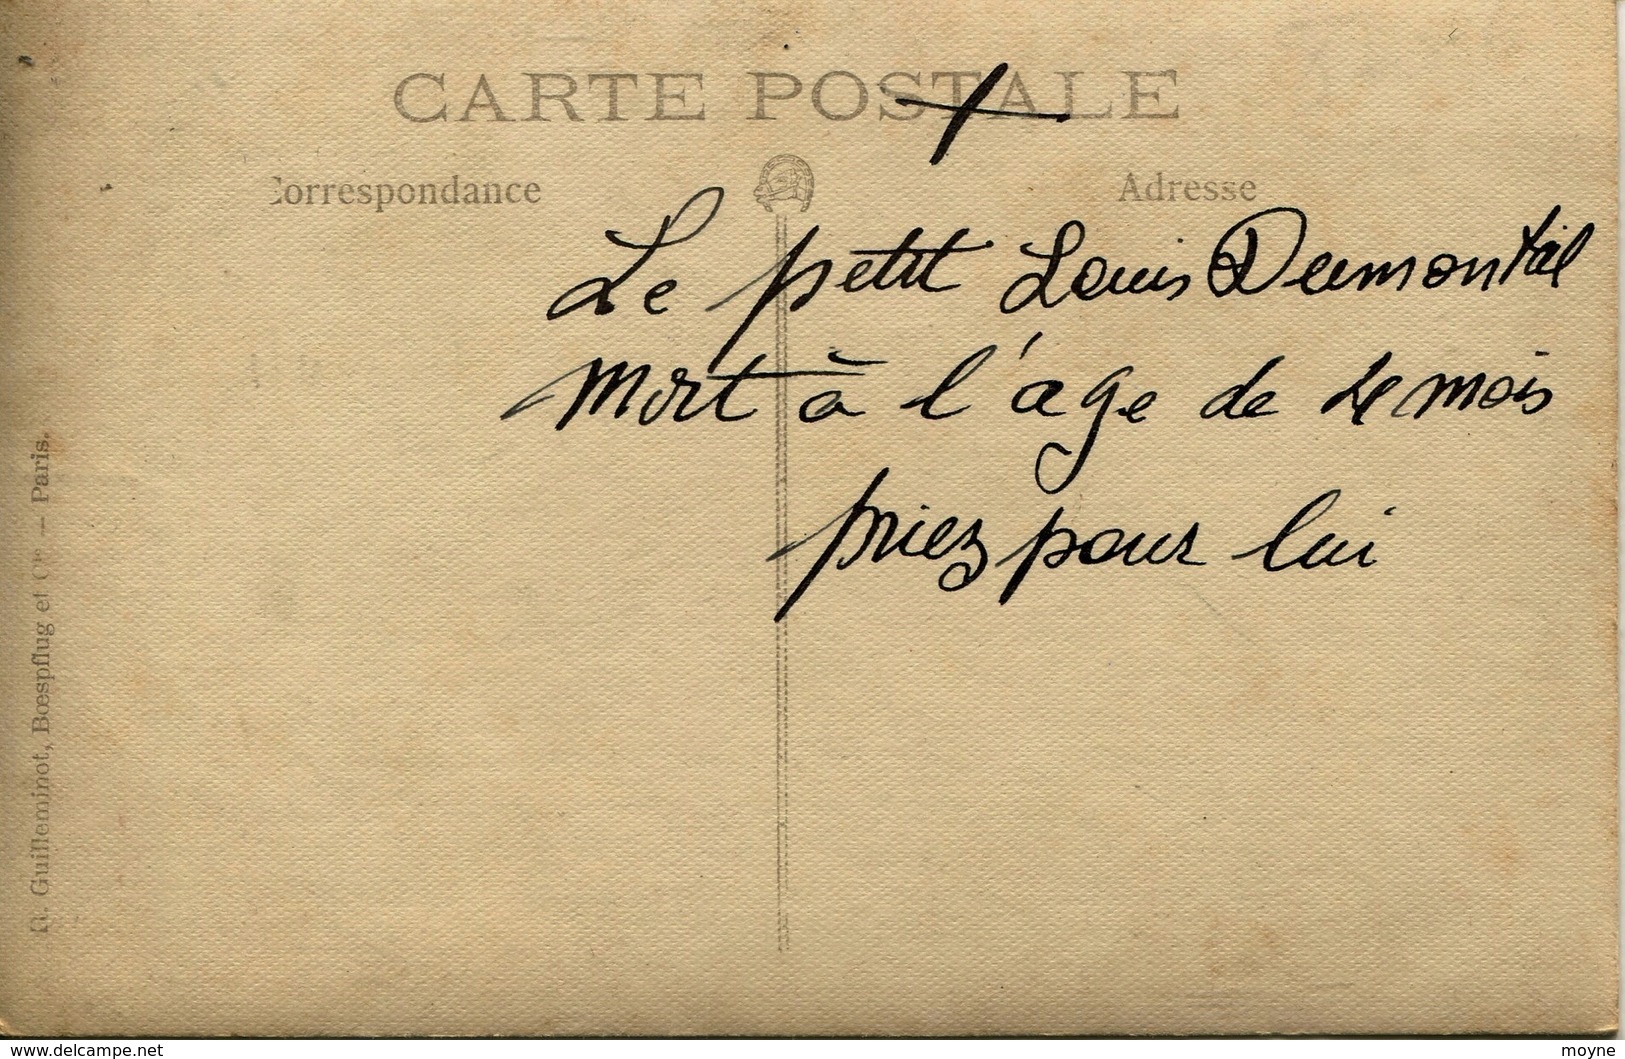 CARTE POSTALE
Correspondance
Adresse
Le petit Louis Dumontail
Mort à l'age de 4 mois
priez pour lui
R. Guilleminot, Bœspflug et Cie — Paris.
www.delcampe.net
moyne